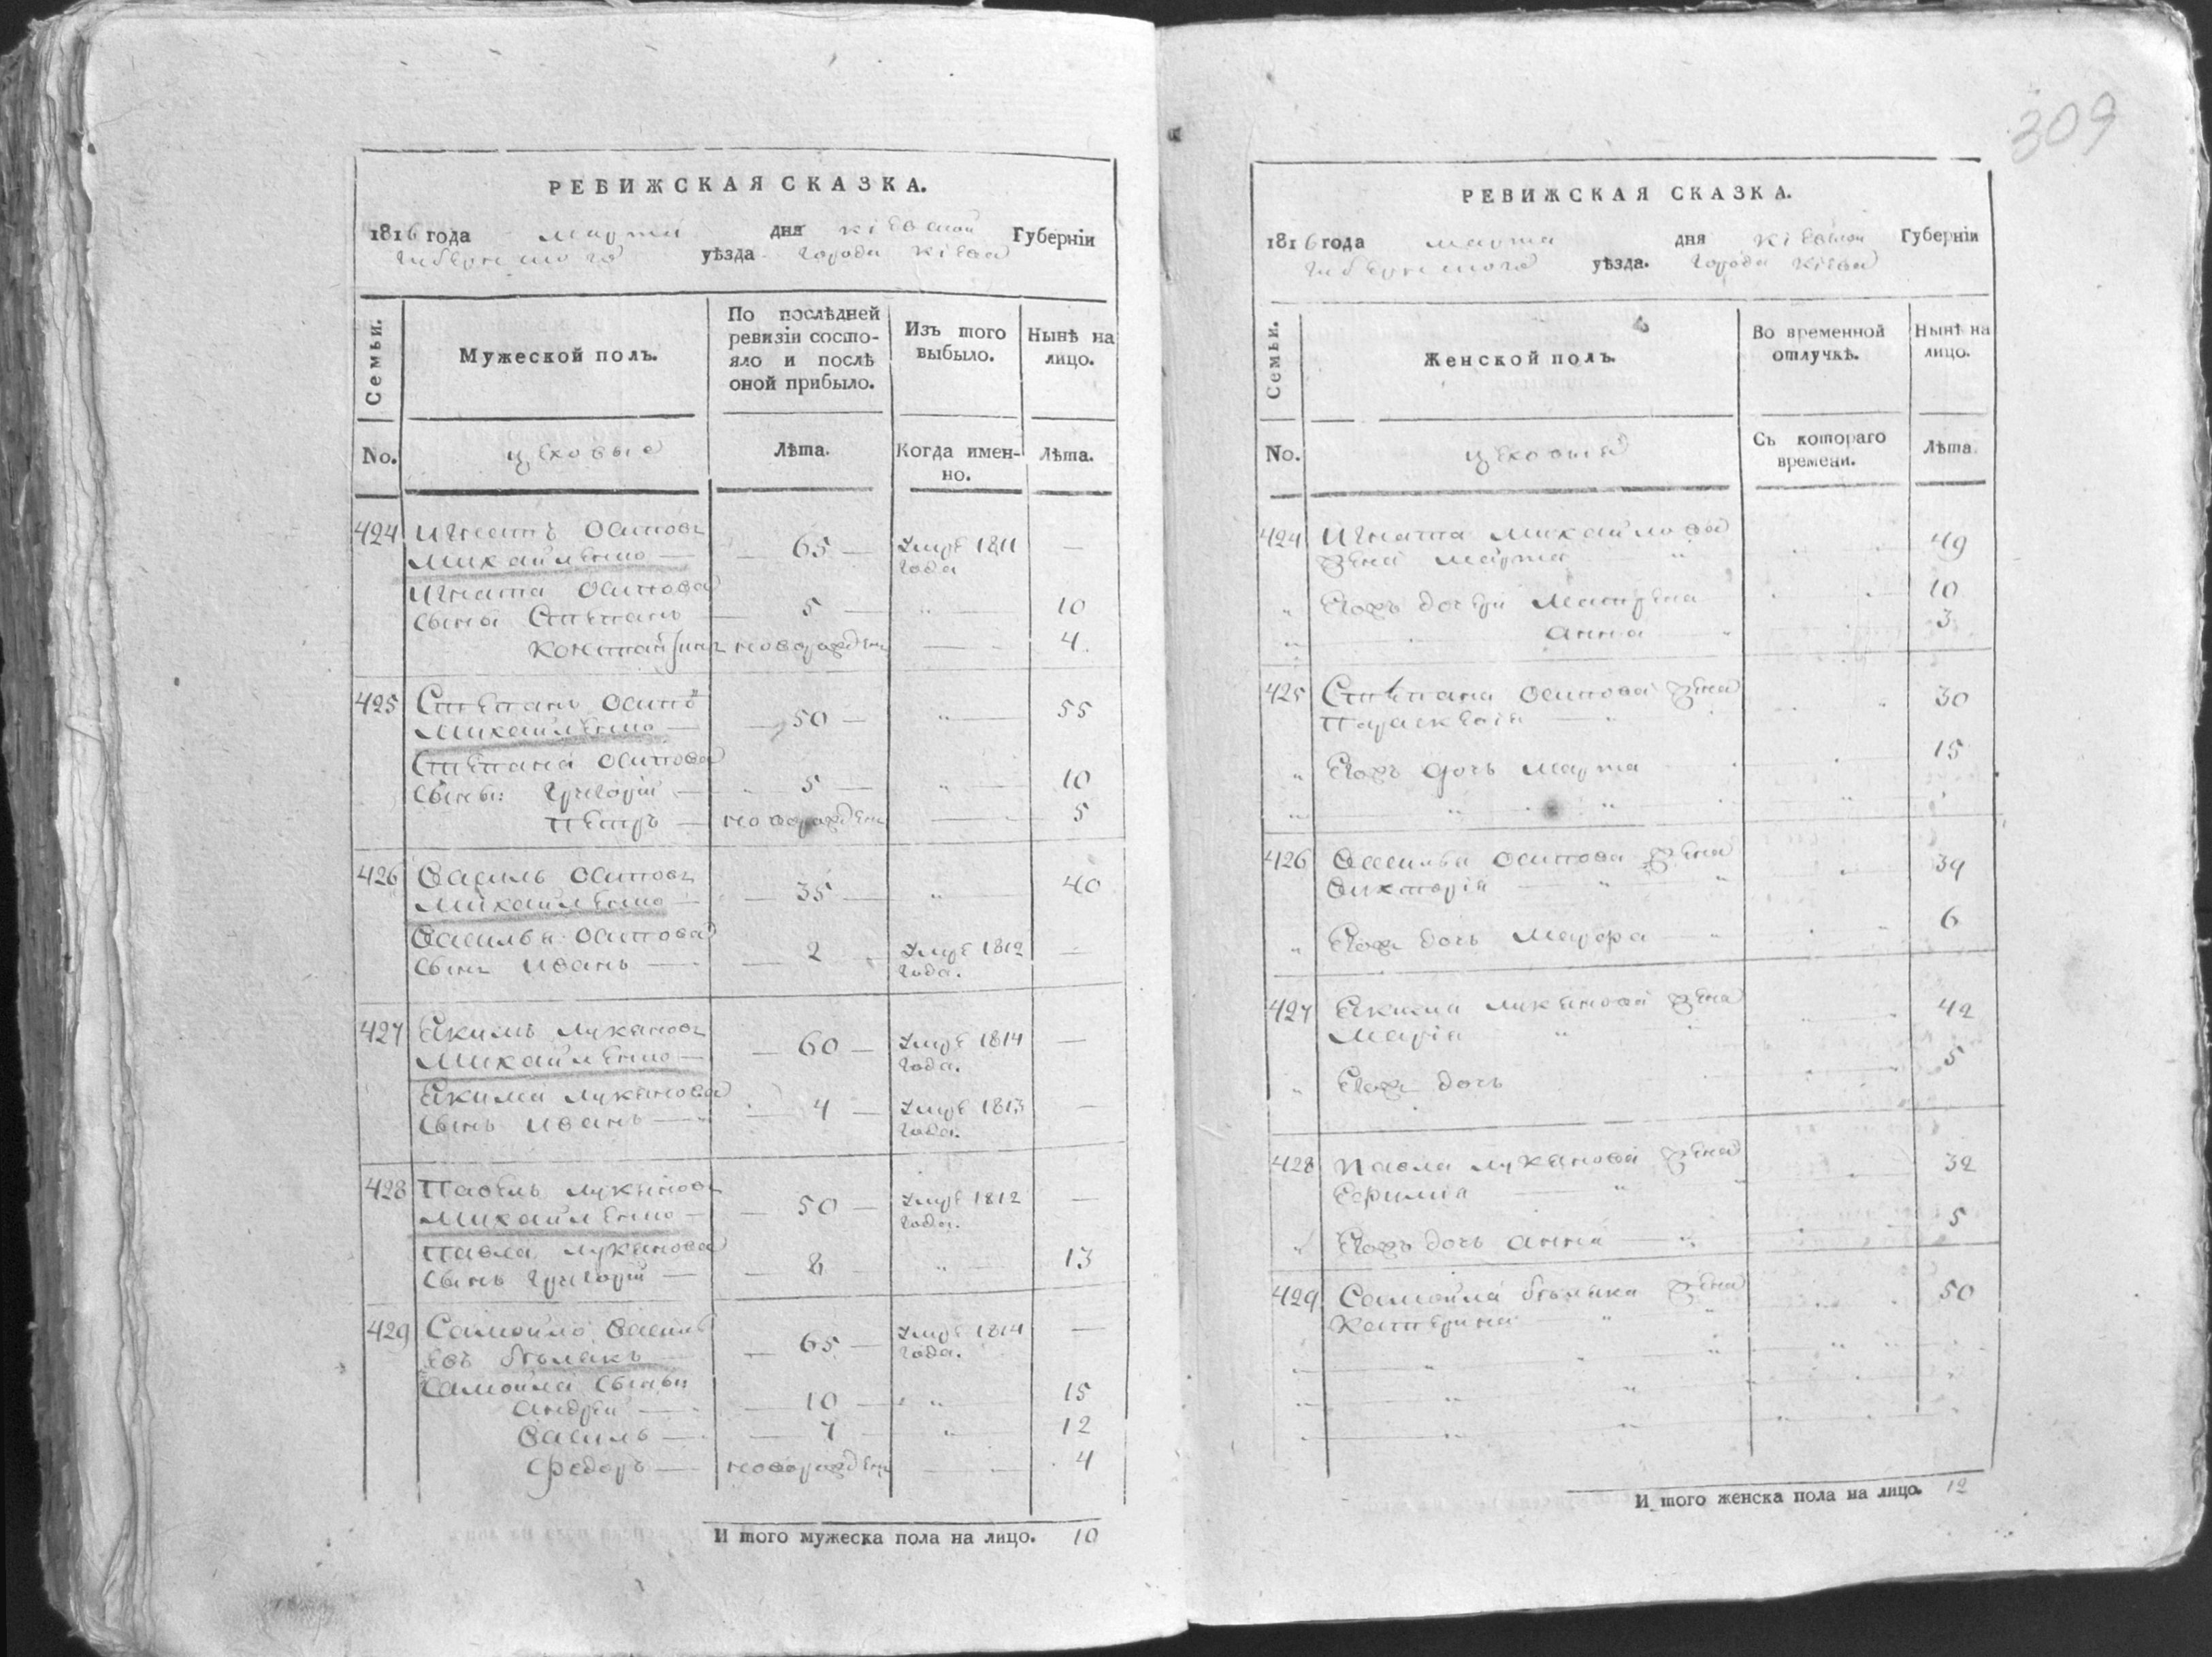 РЕВИЖСКАЯ СКАЗКА.
1816 года марта дня Кіевской Губерніи
Губернского уѣзда города Кіева
Семьи.
Мужеской полъ.
По послѣдней ревизіи состо-
яло и послѣ оной прибыло.
Изъ того выбыло.
Нынѣ на лицо.
No.
цеховые
Лѣта.
Когда имен-
но.
Лѣта.
424 Игнатъ Осиповъ
Михайленко — 65 — умре 1811 года —
Игната Осипова
сыны Степанъ — 5 — " — 10
Константинъ новорожден — 4
425 Степанъ Осипъ
Михайленко — 50 — " — 55
Степана Осипова
сыны Григорій — 5 — " — 10
Петръ — новорожден — 5
426 Василь Осиповъ
Михайленко — 35 — " — 40
Василья Осипова
сынъ Иванъ — 2 умре 1812 года. —
427 Екимъ Лукяновъ
Михайленко — 60 — умре 1814 года. —
Екима Лукянова
сынъ Иванъ — 4 — умре 1813 года. —
428 Павелъ Лукяновъ
Михайленко — 50 — умре 1812 года. —
Павла Лукянова
сынъ Григорій — 8 — " — 13
429 Самойло Василь
евъ Бѣлякъ — 65 — умре 1814 года. —
Самойла сыны
Андрей — 10 — " 15
Василь — 7 — " 12
Федоръ — новорожден — 4
И того мужеска пола на лицо. 10
309
РЕВИЖСКАЯ СКАЗКА.
1816 года марта дня Кіевской Губерніи
Губернского уѣзда. города Кіева
Семьи.
Женской полъ.
Во временной отлучкѣ.
Нынѣ на лицо.
No.
цеховые
Съ котораго времени.
Лѣта.
424 Игната Михайлова
жена Марта " 49
" Егожъ дочери Матрена 10
" Анна " 3
425 Степана Осипова жена
Параскевія — " 30
" Егожъ дочь Марта 15
426 Василья Осипова жена
Викторія — " 39
" Егож дочь Марфа — 6
427 Екима Лукянова жена
Марія " 42
" Егож дочь 5
428 Павла Лукянова жена
Евфимія — " 32
" Егожъ дочь Анна — 5
429 Самойла Бѣляка жена
Катерина — " 50
И того женска пола на лицо. 12